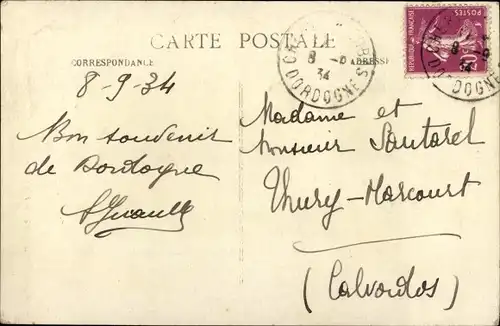 CARTE POSTALE
CORRESPONDANCE
8-9-34
Bon souvenir
de Dordogne
ADRESSE
Madame et
Monsieur Santarel
Thury-Harcourt
(Calvados)
8 -9
34
DORDOGNE
POSTES
REPUBLIQUE FRANÇAISE
8 -9
34
DORDOGNE